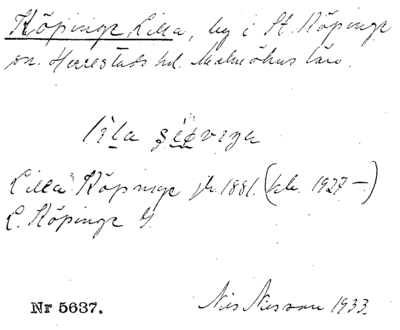 Köpinge, Lilla, by i St. Köpinge
sn. Herrestads hd. Malmöhus län.
lìla
Lilla Köpinge jb. 1881. (kb. 1927–)
L. Köpinge G.
Nr 5637.
Nils Nilsson 1933.